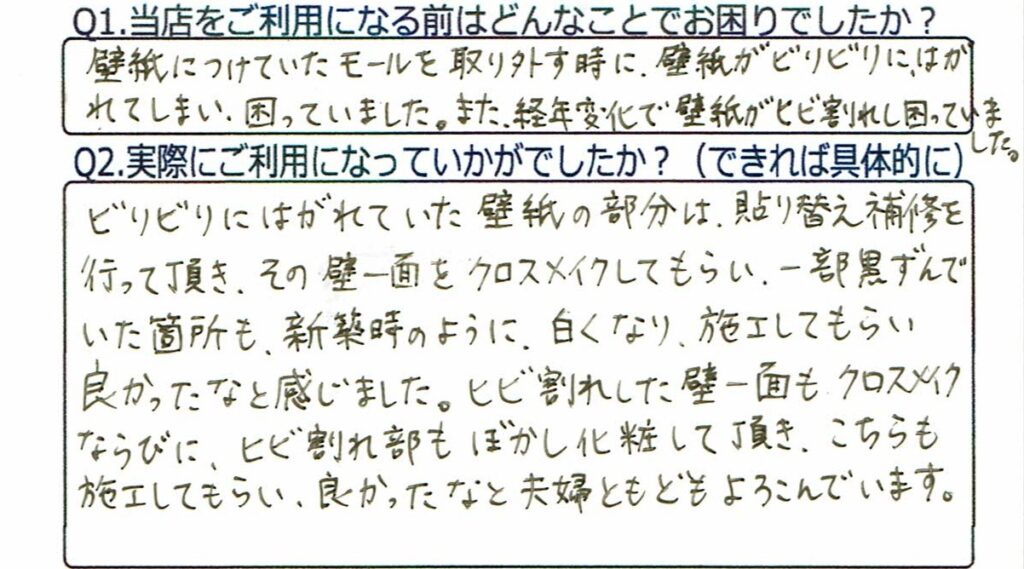 Q1.当店をご利用になる前はどんなことでお困りでしたか？
壁紙につけていたモールを取り外す時に、壁紙がビリビリに、はが
れてしまい、困っていました。また、経年変化で壁紙がヒビ割れし困っていま
した。
Q2.実際にご利用になっていかがでしたか？（できれば具体的に）
ビリビリにはがれていた壁紙の部分は、貼り替え補修を
行って頂き、その壁一面をクロスメイクしてもらい、一部黒ずんで
いた箇所も、新築時のように、白くなり、施工してもらい
良かったなと感じました。ヒビ割れした壁一面も、クロスメイク
ならびに、ヒビ割れ部もぼかし化粧して頂き、こちらも
施工してもらい、良かったなと夫婦ともどもよろこんでいます。